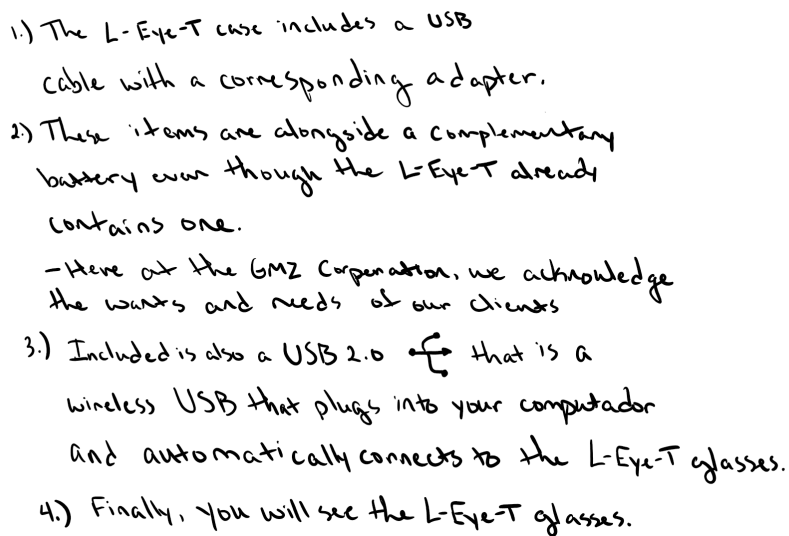 1.) The L-Eye-T case includes a USB
cable with a corresponding adapter.
2.) These items are alongside a complementary
battery even though the L-Eye-T already
contains one.
- Here at the GMZ Corperation, we acknowledge
the wants and needs of our clients
3.) Included is also a USB 2.0 that is a
wireless USB that plugs into your computador
and automatically connects to the L-Eye-T glasses.
4.) Finally, you will see the L-Eye-T glasses.